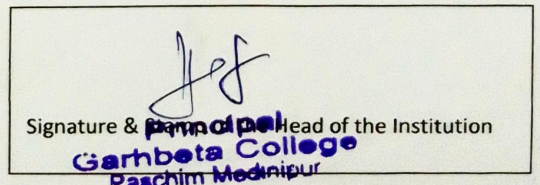 Signature & Stamp of the Head of the Institution
Principal
Garhbeta College
Paschim Medinipur